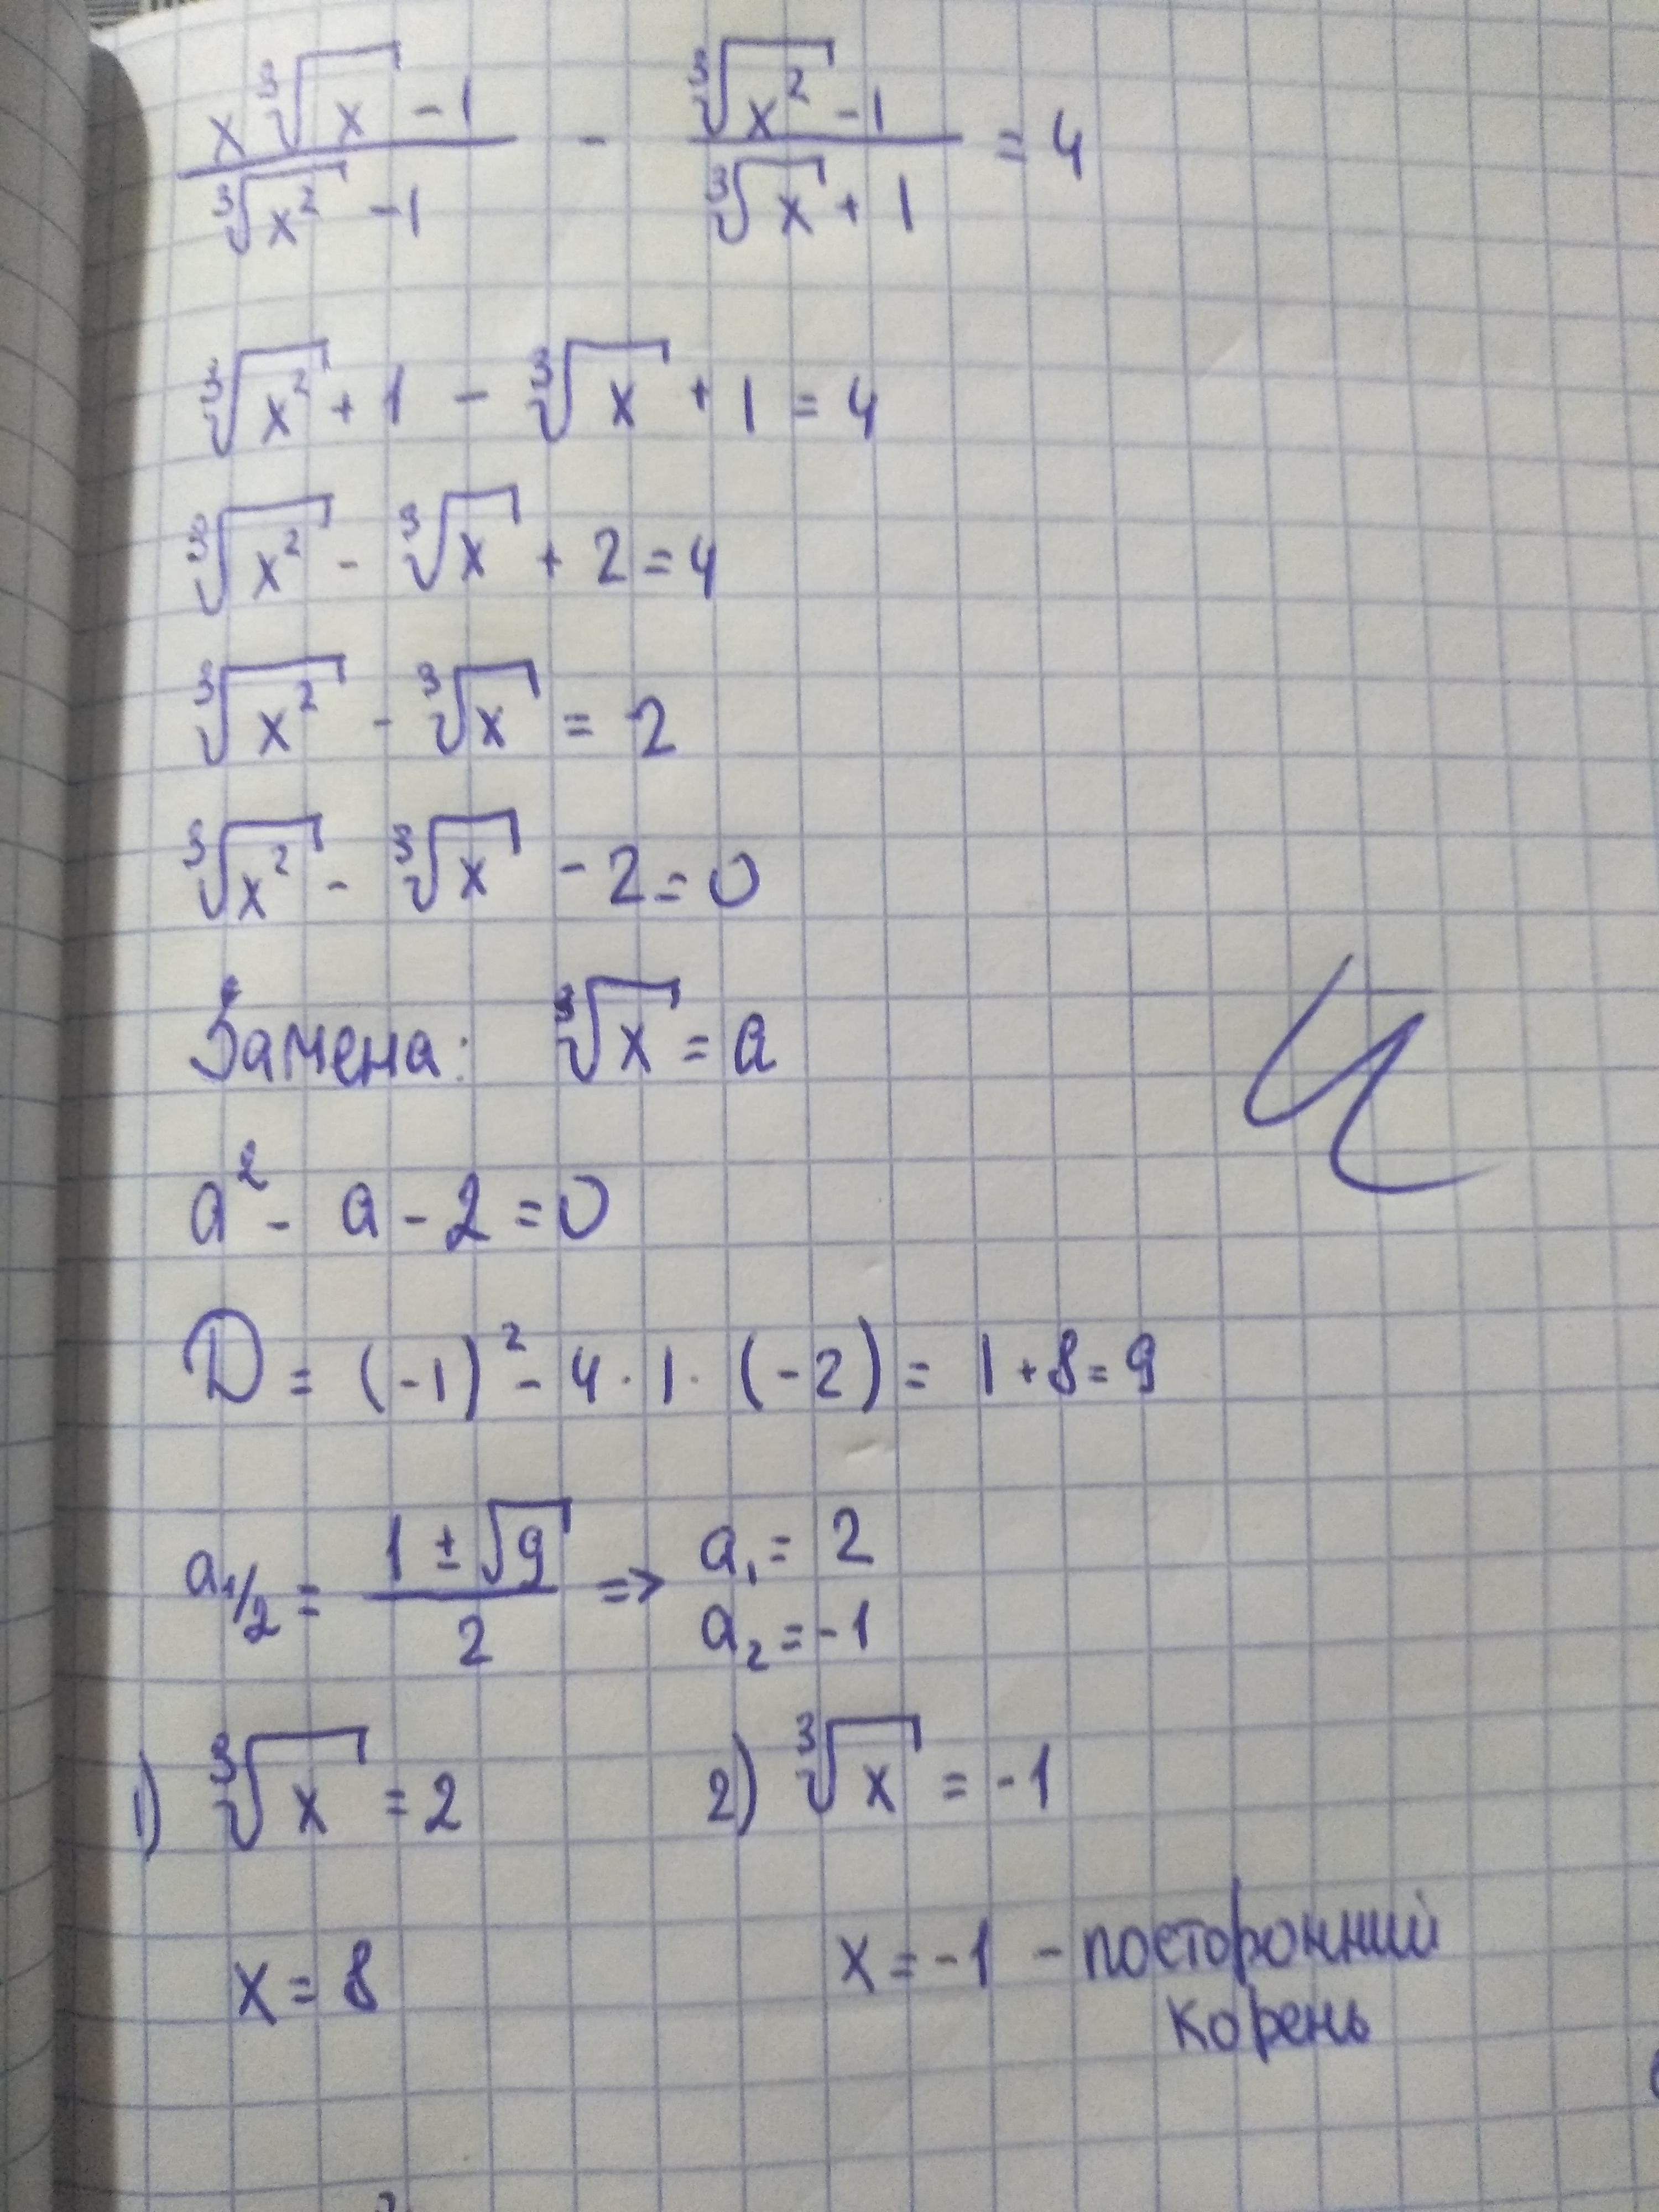 (x∛x - 1)/(∛x² - 1) - (∛x² - 1)/(∛x + 1) = 4
∛x² + 1 - ∛x + 1 = 4
∛x² - ∛x + 2 = 4
∛x² - ∛x = 2
∛x² - ∛x - 2 = 0
Замена: ∛x = a
a² - a - 2 = 0
D = (-1)² - 4 · 1 · (-2) = 1 + 8 = 9
a₁/₂ = (1 ± √9)/2 => a₁ = 2
a₂ = -1
1) ∛x = 2 2) ∛x = -1
x = 8 x = -1 - посторонний
корень